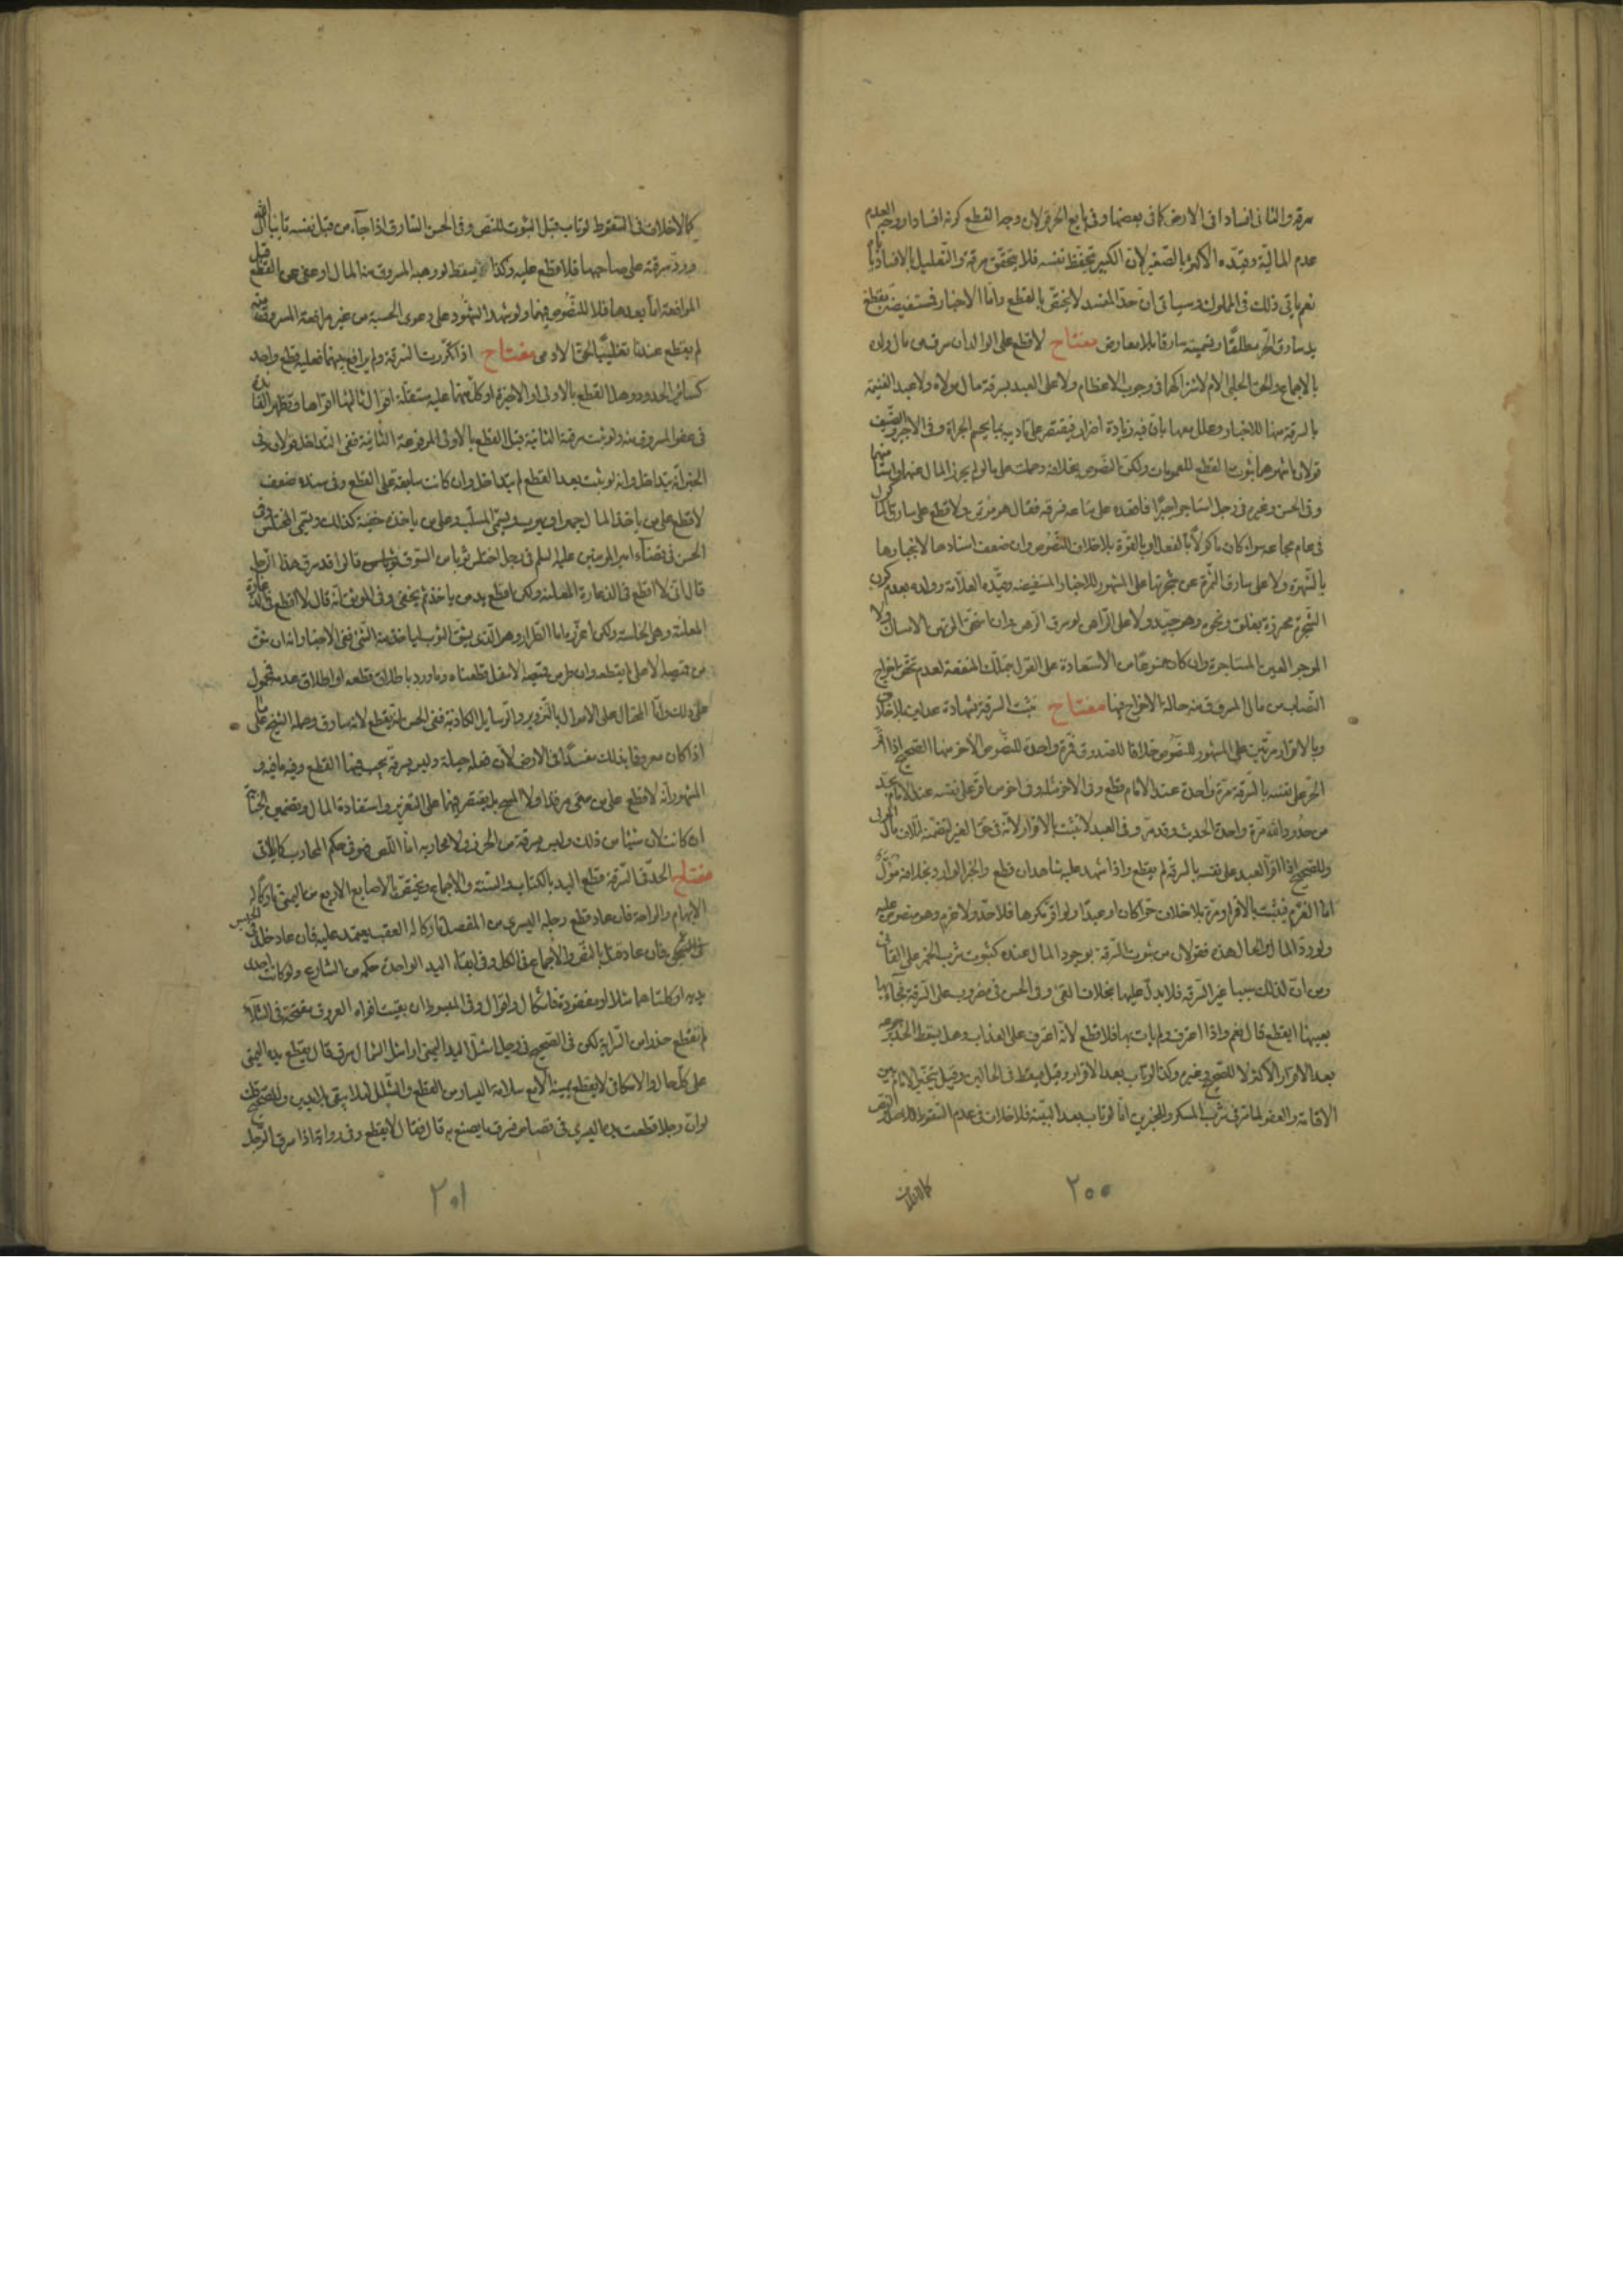 سرقة والثانى افسادا فى الارض كما فى بعضها وفى بايع الحر قولان وجه القطع كونه افسادا ووجه العدم
عدم المالية وقيده الأكثر بالصغير لان الكبير يتحفظ نفسه فلا يتحقق سرقة والتعليل بالافساد
نعم ياتى ذلك فى المملوك وسياتى ان حد المفسد لا يختص بالقطع واما الاخبار فمستفيضة بقطع
يد سارق الحر مطلقا وتسميته سارقا بلا معارض مفتاح لا قطع على الوالد ان سرق من مال ولده
بالاجماع والحق الحلبى الام لاشتراكهما فى وجوب الاعظام ولا على العبد بسرقة مال مولاه ولا عبد الغنيمة
بالسرقة منها للاخبار وعلل معها بان فيه زيادة اضرار فيقتصر على تاديبه بما يحسم الجراة وفى الاجير والضيف
قولان اشهرهما ثبوت القطع للعمومات ولكن النصوص بخلافه وحملت على ما لو لم يحرز المال عنهما
وفى الحسن وغيره فى رجل استاجر اجيرا فاقعده على متاعه فسرقه فقال هو مؤتمن ولا قطع على سارق
فى عام مجاعة سواء كان ماكولا بالفعل او بالقوة بلا خلاف للنصوص وان ضعف اسنادها لانجبارها
بالشهرة ولا على سارق الثمرة عن شجرتها على المشهور للاخبار المستفيضة وقيده العلامة وولده بعدم كون
الشجرة محرزة بغلق ونحوه وهو جيد ولا على الراهن لو سرق الرهن وان استحق المرتهن الامساك ولا
الموجر العين المستاجرة وان كان ممنوعا من الاستعادة على القول بتملك المنفعة لعدم تحقق اخراج
النصاب من مال المسروق منه حالة الاخراج فيهما مفتاح تثبت السرقة بشهادة عدلين بلا خلاف
وبالاقرار مرتين على المشهور للنصوص خلافا للصدوق فمرة واحدة للنصوص الاخر منها الصحيح اذا اقر
الحر على نفسه بالسرقة مرة واحدة عند الامام قطع وفى الاخر مثله وفى اخر من اقر على نفسه عند الامام بحد
من حدود الله مرة واحدة الحديث وقد مر وفى العبد لا تثبت بالاقرار لانه فى حق الغير لتضمنه اتلاف مال المولى
وللصحيح اذا اقر العبد على نفسه بالسرقة لم يقطع واذا شهد عليه شاهدان قطع والخبر الوارد بخلافه مؤول
اما الغرم فيثبت بالاقرار مرة بلا خلاف حرا كان او عبدا ولو اقر مكرها فلا حد ولا غرم وهو منصوص عليه
ولو رد المال والحال هذه فقولان من ثبوت السرقة بوجود المال عنده كثبوت شرب الخمر على القائى
ومن ان لذلك سببا غير السرقة فلا يدل عليها بخلاف القىء وفى الحسن فى مضروب على السرقة فجاء بها
بعينها ايقطع قال نعم واذا اعترف ولم يات بها فلا قطع لانه اعترف على العذاب وهل يسقط الحد برجوعه
بعد الاقرار الاكثر لا للصحيح وغيره وكذا لو تاب بعد الاقرار وقيل يسقط فى الحالين وقيل يتخير الامام بين
الاقامة والعفو لما مر فى شرب المسكر وللخبرين اما لو تاب بعد البينة فلا خلاف فى عدم السقوط
كما لا خلاف
٢٠٠
كما لا خلاف فى السقوط لو تاب قبل الثبوت للنص وفى الحسن السارق اذا جاء من قبل نفسه تائبا الى الله
ورد سرقته على صاحبها فلا قطع عليه وكذا يسقط لو وهبه المسروق منه المال او عفى عن القطع قبل
المرافعة اما بعدها فلا للنصوص فيهما ولو شهد الشهود على دعوى الحسبة من غير مرافعة المسروق منه
لم يقطع عندنا تغليبا لحق الادمى مفتاح اذا تكررت السرقة ولم يرافع بينهما فعليه قطع واحد
كسائر الحدود وهل القطع بالاولى او الاخيرة او كل منهما علة مستقلة اقوال ثالثها اقواها وتظهر الفائدة
فى عفو المسروق منه ولو ثبت سرقة الثانية قبل القطع بالاولى المرفوعة الثانية ففى التداخل قولان وفى
الخبر انه يتداخل وانه لو ثبت بعد القطع لم يتداخل وان كانت سابقة على القطع وفى سنده ضعف
لا قطع على من ياخذ المال جهرا ويهرب ويسمى المستلب وعلى من ياخذه خفية كذلك ويسمى المختلس وفى
الحسن فى قضاء امير المومنين عليه السلم فى رجل اختلس ثوبا من السوق فقالوا قد سرق هذا الرجل
قال انى لا اقطع فى الدغارة المعلنة ولكن اقطع يد من ياخذ ثم يخفى وفى الموثق انه قال لا اقطع فى الدغارة
المعلنة وهى الخلسة ولكن اعزره اما الطرار وهو الذى يشق الثوب لياخذ منه الشىء ففى الاخبار انه ان طر
من قميصه الاعلى لم نقطعه وان طر من قميصه الاسفل قطعناه وما ورد باطلاق قطعه او اطلاق عدمه محمول
على ذلك واما المحتال على الاموال بالتزوير والرسايل الكاذبة ففى الحسن انه يقطع لانه سارق وحمله الشيخ على ما
اذا كان معروفا بذلك مفسدا فى الارض لان فعله حيلة وليس سرقة يجب فيها القطع وفيه ما فيه و
المشهور انه لا قطع على من سقى مرقدا ولا المبنج بل يقتصر فيهما على التعزير واستعادة المال ويضمن الجناية
ان كانت لان شيئا من ذلك وليس سرقة من الحرز ولا محاربه اما اللص فهو فى حكم المحارب كما ياتى
مفتاح الحد فى السرقة قطع اليد بالكتاب والسنة والاجماع ويختص بالاصابع الاربع من اليمنى تاركا له
الابهام والراحة فان عاد قطع رجله اليسرى من المفصل تاركا له العقب يعتمد عليه فان عاد خلد فى الحبس
فان عاد قتل بالنص والاجماع فى الكل وفى ابقاء اليد الواحدة حكمة من الشارع ولو كانت احدى
يديه او كلتاهما شلاء او مفقودة فاشكال واقوال وفى المبسوط ان بقيت افواه العروق مفتحة فى الشلاء
لم تقطع حذرا من السراية لكن فى الصحيح فى رجل اشل اليد اليمنى او اشل الشمال سرق قال يقطع يده اليمنى
على كل حال والاسكافى لا يقطع يمينه الا مع سلامة اليسار من القطع والشلل لئلا يبقى بلا يدين وللصحيح
لو ان رجلا قطعت يده اليسرى فى قصاص فسرق ما يصنع به قال فقال لا يقطع وفى رواية اذا سرق الرجل
٢٠١